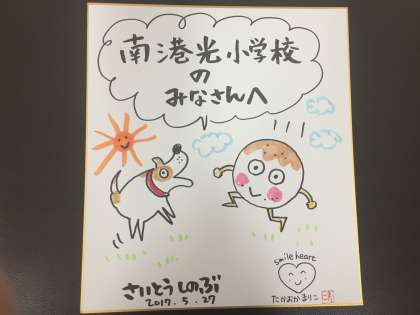 南港光小学校
の
みなさんへ
さいとうしのぶ
2017.5.27
smile heart
たかおかまりこ